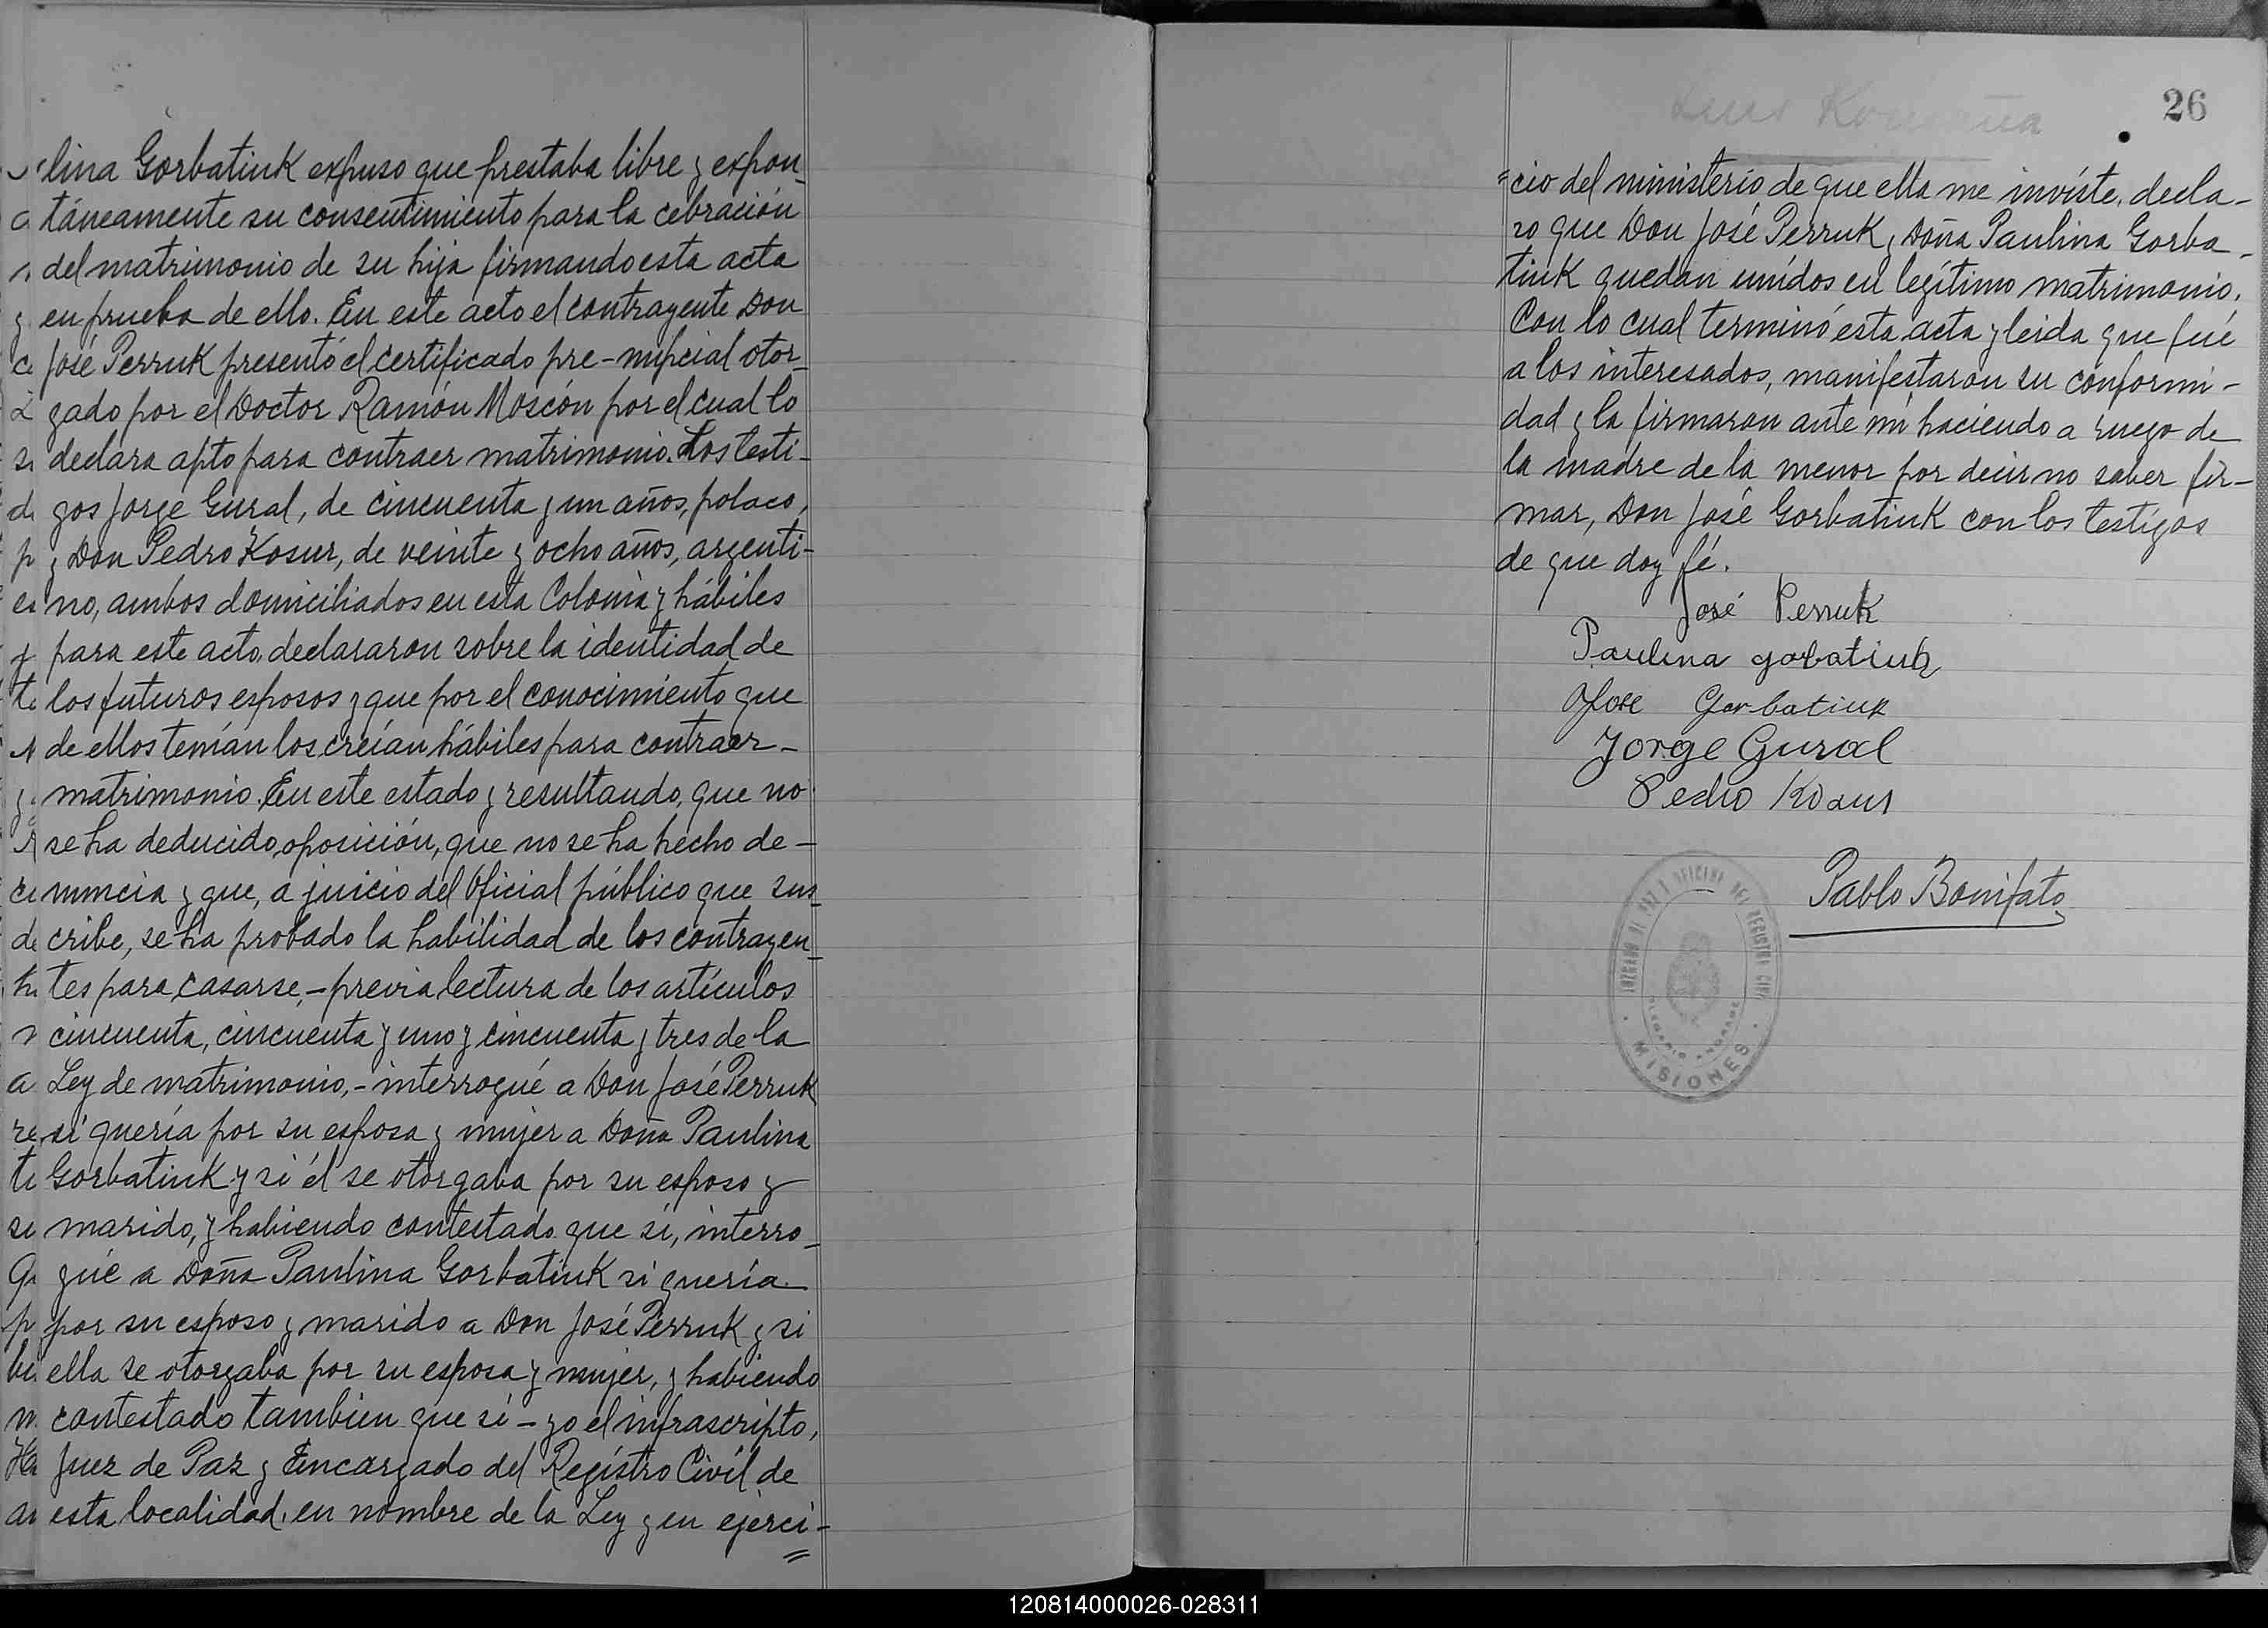 lina Gorbatiuk expuso que prestaba libre y expon_
táneamente su consentimiento para la cebración
del matrimonio de su hija firmando esta acta
en prueba de ello. En este acto el contrayente Don
José Perruk presentó el certificado pre-nupcial otor_
gado por el Doctor Ramón Moscón por el cual lo
declara apto para contraer matrimonio. Los testi-
gos Jorge Gural, de cincuenta y un años, polaco,
y Don Pedro Kosur, de veinte y ocho años, argenti-
no, ambos domiciliados en esta Colonia y hábiles
para este acto, declararon sobre la identidad de
los futuros esposos y que por el conocimiento que
de ellos tenían los creían hábiles para contraer-
matrimonio. En este estado y resultando, que no
se ha deducido oposición, que no se ha hecho de-
nuncia y que, a juicio del Oficial público que sus_
cribe, se ha probado la habilidad de los contrayen_
tes para casarse,-previa lectura de los artículos
cincuenta, cincuenta y uno y cincuenta y tres de la
Ley de matrimonio,-interrogué a Don José Perruk
si quería por su esposa y mujer a Doña Paulina
Gorbatiuk y si él se otorgaba por su esposo y
marido, y habiendo contestado que si, interro_
gué a Doña Paulina Gorbatiuk si quería
por su esposo y marido a Don José Perruk y si
ella se otorgaba por su esposa y mujer, y habiendo
contestado tambien que si-yo el infrascripto,
Juez de Paz y Encargado del Regístro Civíl de
esta localidad, en nombre de la Ley y en ejerci-
26
cio del ministerio de que ella me inviste, decla-
ro que Don José Perruk y Doña Paulina Gorba-
tiuk quedan unidos en legítimo matrimonio.
Con lo cual terminó esta acta y leida que fué
a los interesados, manifestaron su conformi-
dad y la firmaron ante mi haciendo a ruego de
la madre de la menor por decir no saber fir-
mar, Don José Gorbatiuk con los testigos
de que doy fé.
José Perruk
Paulina gorbatiuk
Jose Gorbatiuk
Jorge Gural
Pedro Kosur
Pablo Bonifato
JUZGADO DE PAZ Y OFICINA DEL REGISTRO CIVIL
MISIONES
120814000026-028311